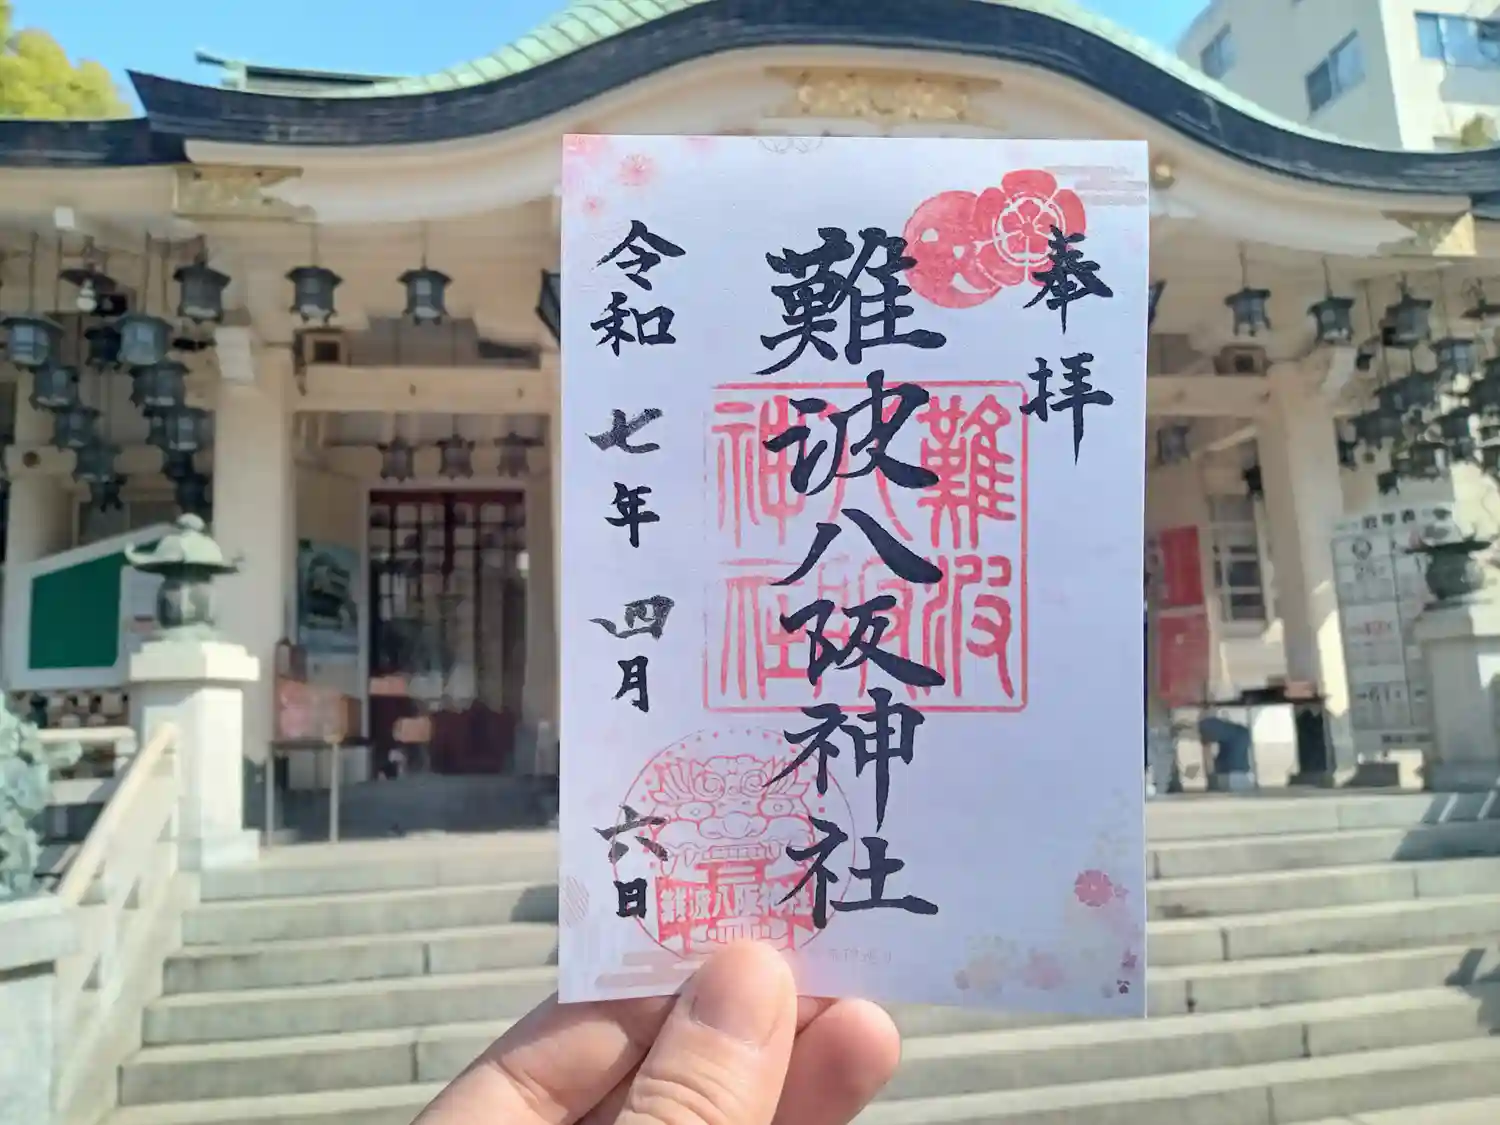 奉拝
難波八阪神社
令和七年四月六日
難波
八阪
神社
難波八阪神社